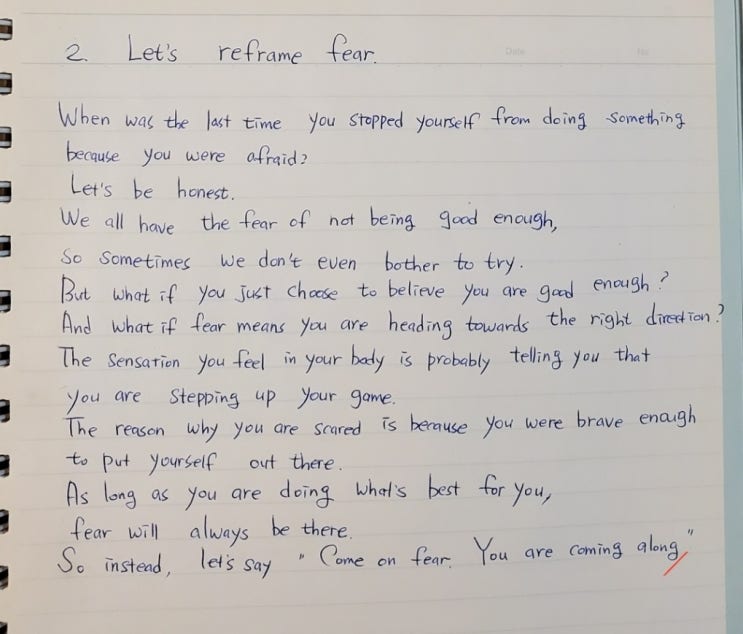 Date
No
2. Let's reframe fear.
When was the last time you stopped yourself from doing something
because you were afraid?
Let's be honest.
We all have the fear of not being good enough,
So sometimes we don't even bother to try.
But what if you just choose to believe you are good enough?
And what if fear means you are heading towards the right direction?
The sensation you feel in your body is probably telling you that
you are stepping up your game.
The reason why you are scared is because you were brave enough
to put yourself out there.
As long as you are doing what's best for you,
fear will always be there.
So instead, let's say "Come on fear. You are coming along"